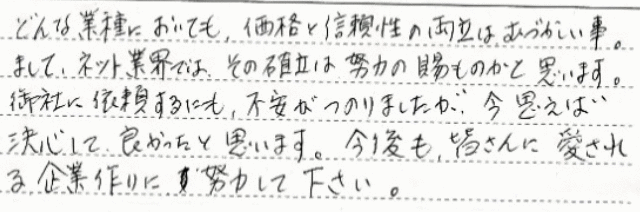 どんな業種においても,価格と信頼性の両立はむづかしい事。
まして、ネット業界では、その確立は努力の賜ものかと思います。
御社に依頼するにも,不安がつのりましたが、今思えば
決心して良かったと思います。今後も,皆さんに愛され
る企業作りに努力して下さい。